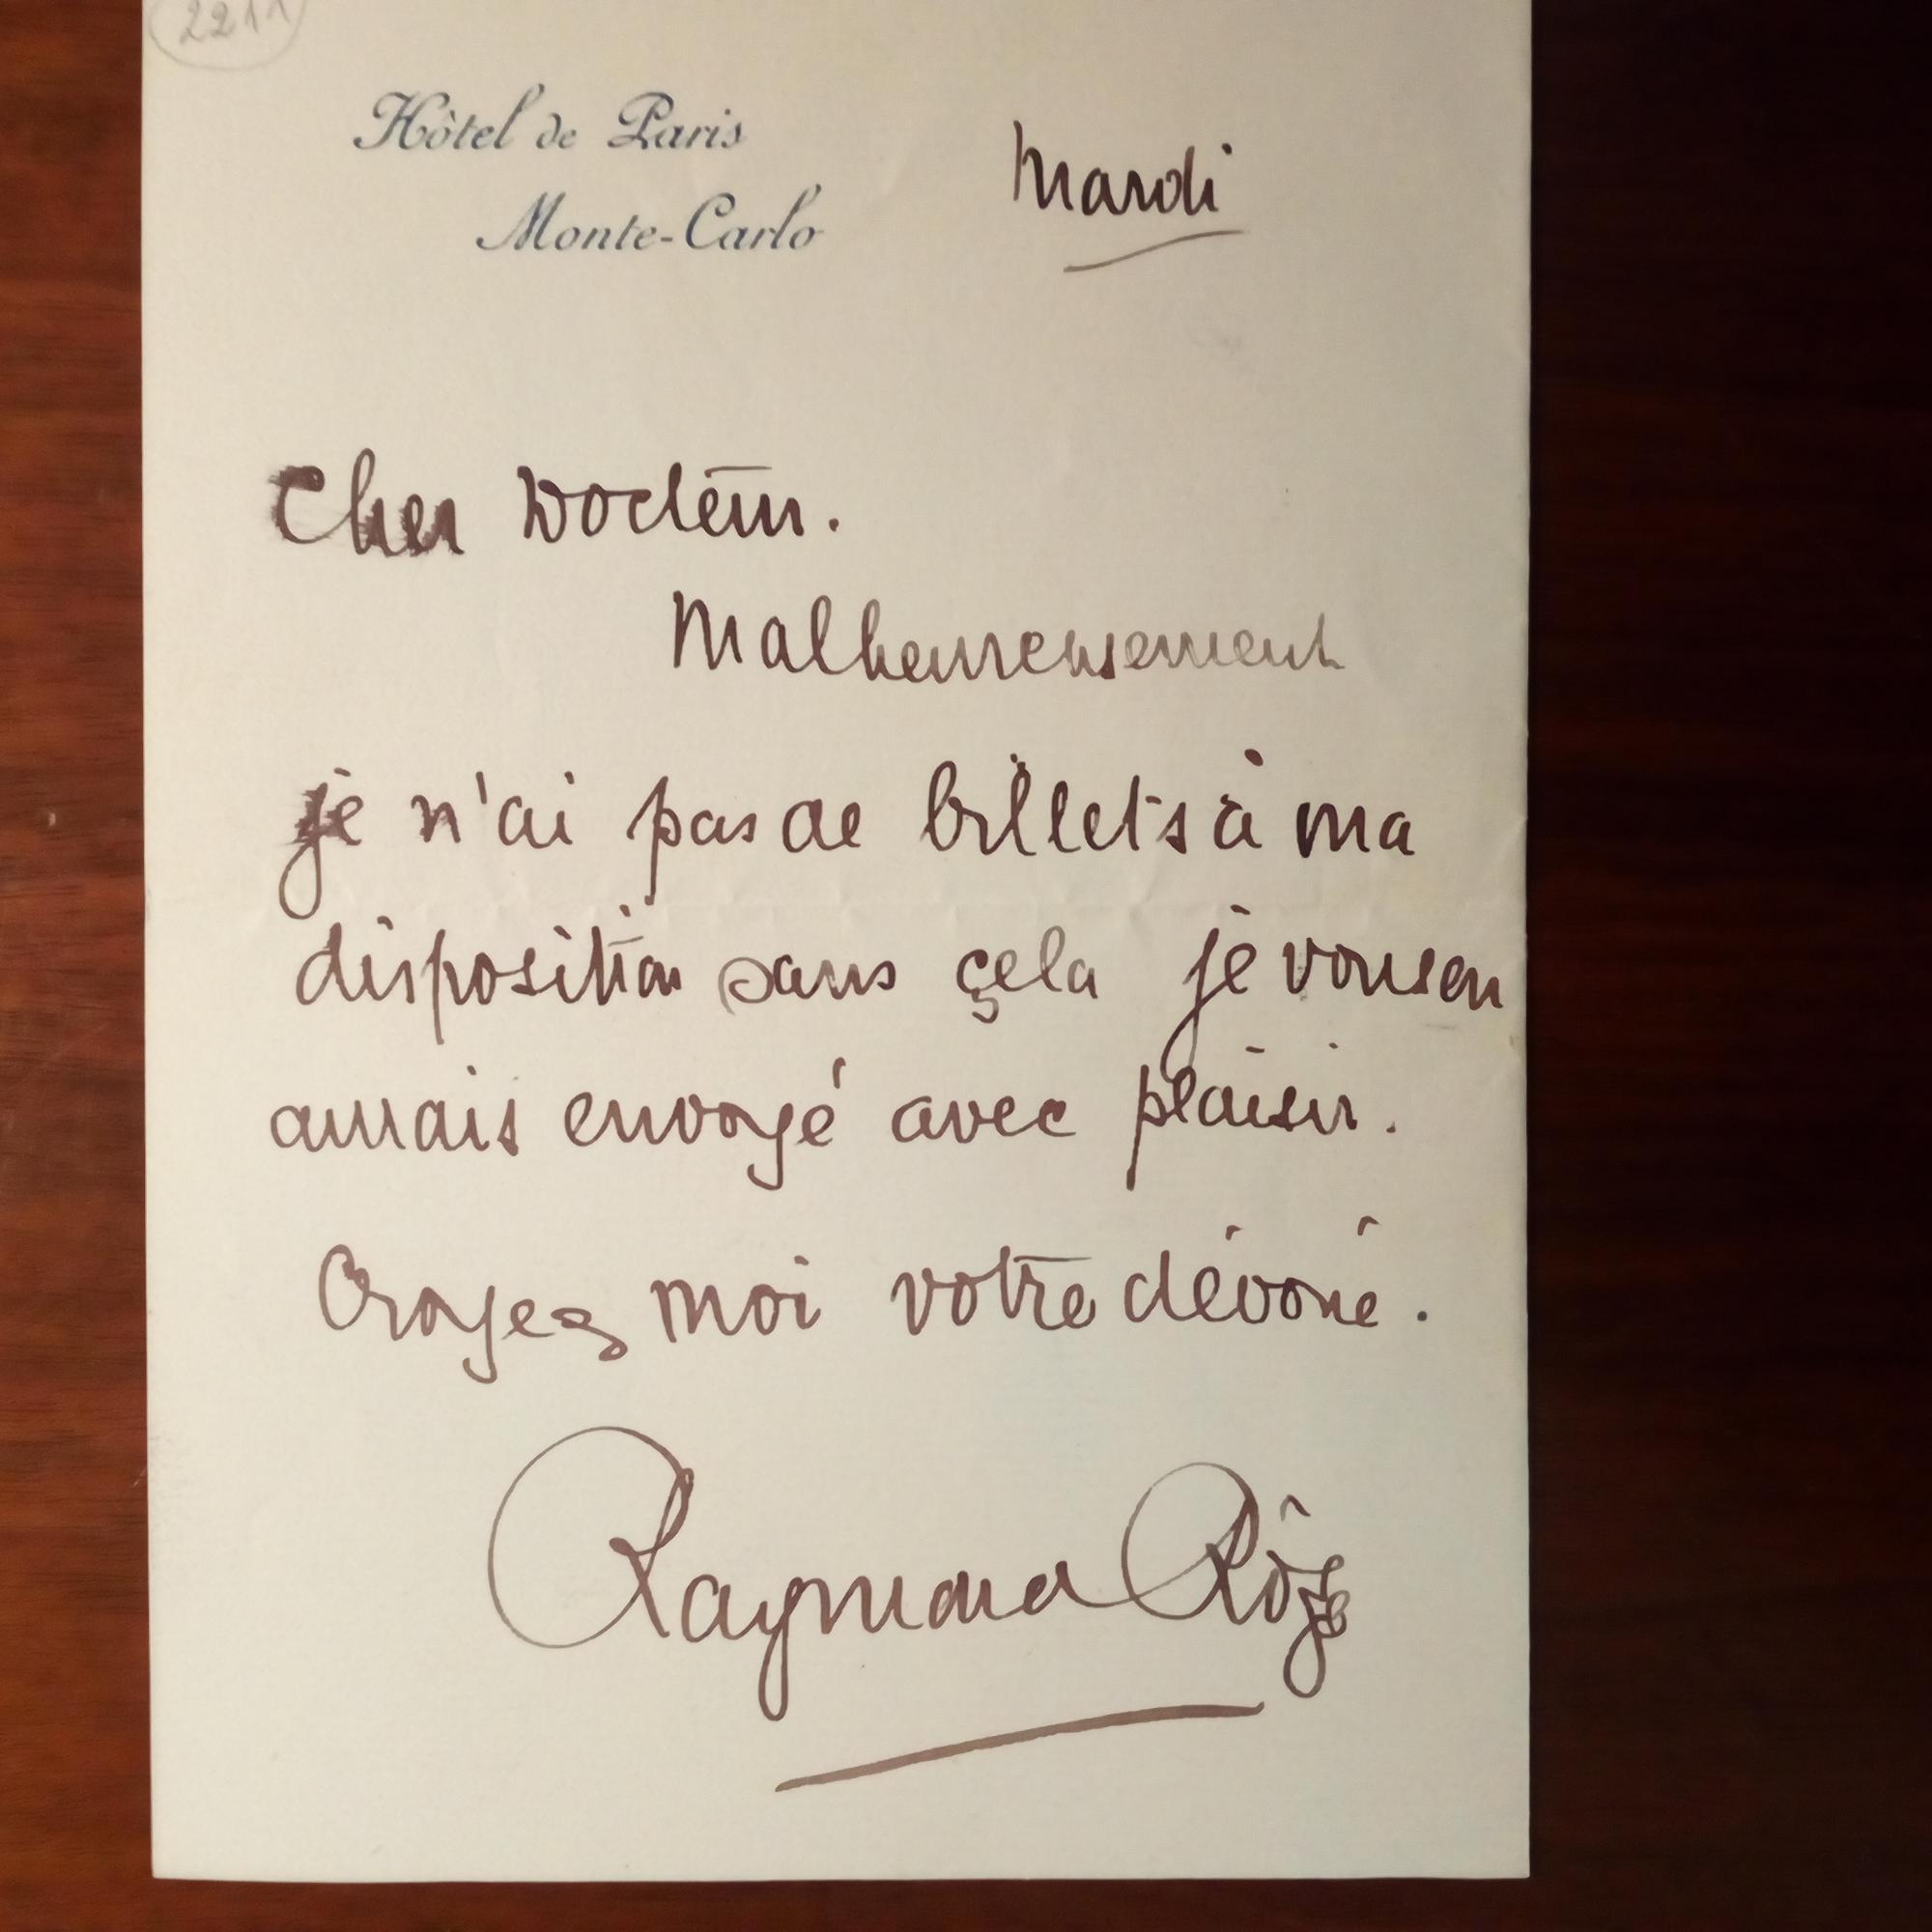 2211
Hôtel de Paris
Monte-Carlo
Mardi
Cher Docteur.
Malheureusement
je n'ai pas de billets à ma
disposition sans çela je vous en
aurais envoyé avec plaisir.
Croyez moi votre dévoué.
Raymond Rôze